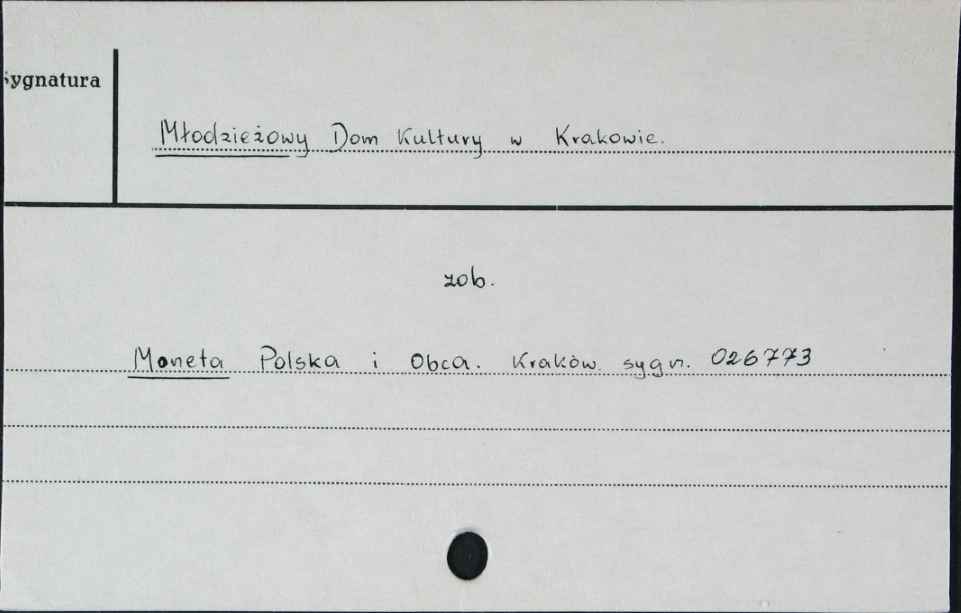 Sygnatura
Młodzieżowy Dom Kultury w Krakowie.
zob.
Moneta Polska i Obca. Kraków sygn. 026773